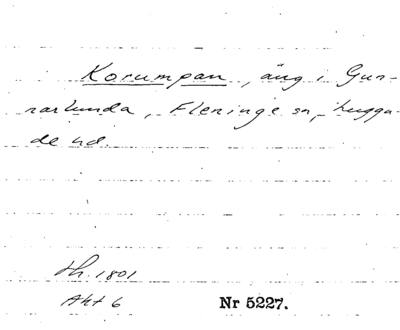 Korumpan, äng i Gun-
narlunda, Fleninge sn, Luggu-
de hd.
th. 1801
Akt 6
Nr 5227.